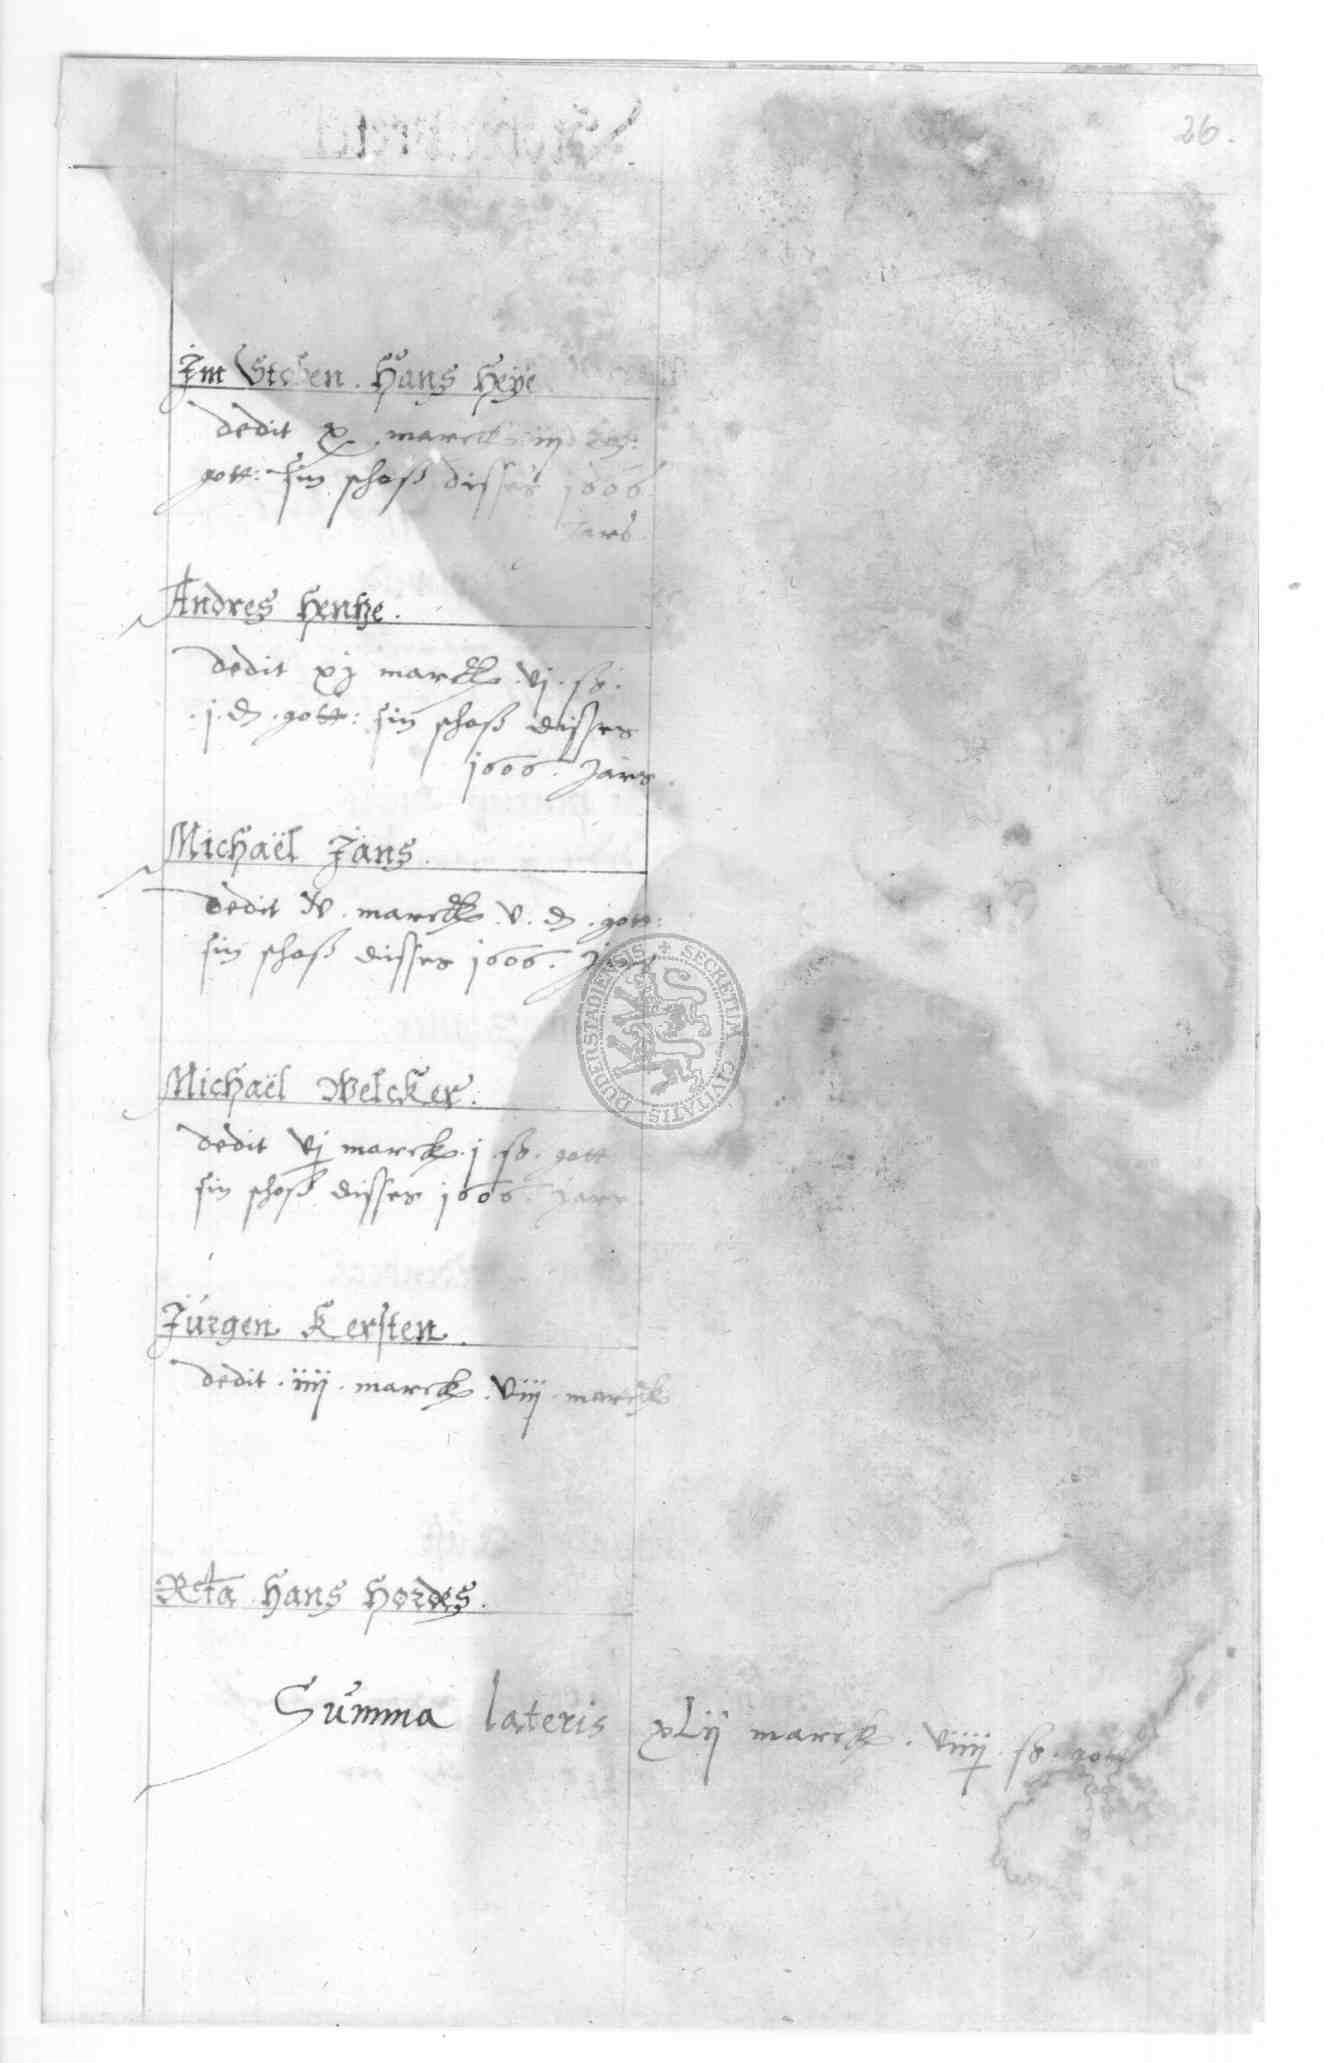 26.
Im Stoben. Hans Heÿe
dedit x marck iij
gott: sin schoß disses 1606
Jars
Andres Hentze.
dedit xj marck. vj. ß.
. j. d. gott: sin schoß disses
1606. Jars
Michaël Jans.
dedit marck. v. d. gott:
sin schoß disses 1606. Jars
Michaël Welcker.
dedit vj marck. j. ß. gott
sin schoß disses 1606. Jars
Jürgen Kersten.
dedit. iiij. marck. viij. marck
Rcta Hans Hordes.
Summa lateris xLij marck. viiij. ß. gott
DUDERSTADIENSIS + SECRETUM CIVITATIS